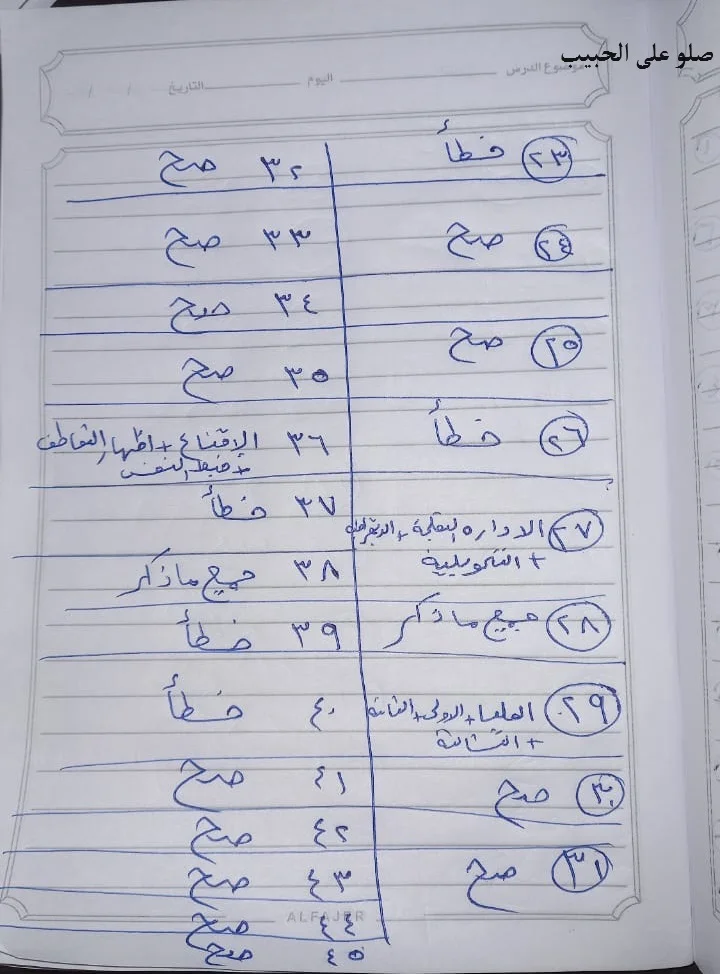 صلو على الحبيب
موضوع الدرس اليوم التاريخ / /
٢٣ خطأ
٢٤ صح
٢٥ صح
٢٦ خطأ
٢٧ الادارة التقليدية + الديمقراطية
+ التحويلية
٢٨ جميع ما ذكر
٢٩ العليا + الاولى + الثانية
+ الثالثة
٣٠ صح
٣١ صح
٣٢ صح
٣٣ صح
٣٤ صح
٣٥ صح
٣٦ الإقناع + اظهار التعاطف
+ ضبط النفس
٣٧ خطأ
٣٨ جميع ما ذكر
٣٩ خطأ
٤٠ خطأ
٤١ صح
٤٢ صح
٤٣ صح
٤٤ صح
٤٥ صح
ALFAJER